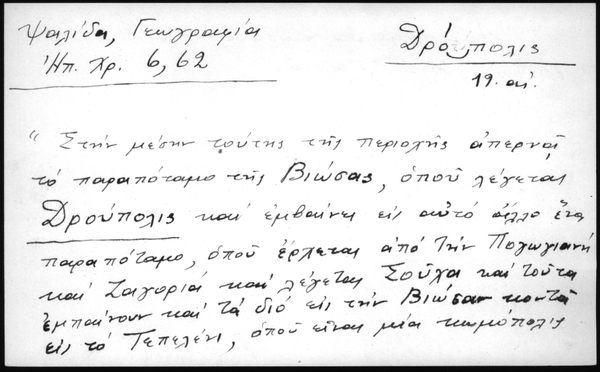 Ψαλίδα, Γεωγραφία
Ἠπ. Χρ. 6, 62
Δρούπολις
19. αἰ.
"Στήν μέσην τούτης τῆς περιοχῆς ἀπερνᾷ
τό παραπόταμο τῆς Βιώσας, ὁποῦ λέγεται
Δρούπολις καί ἐμβαίνει εἰς αὐτό ἄλλο ἕνα
παραπόταμο, ὁποῦ ἔρχεται ἀπό τήν Πογωγιανή
καί Ζαγοριά καί λέγεται Σοῦχα καί τοῦτα
ἐμπαίνουν καί τά διό εἰς τήν Βιώσαν κοντά
εἰς τό Τεπελένι, ὁποῦ εἶναι μία κωμόπολις